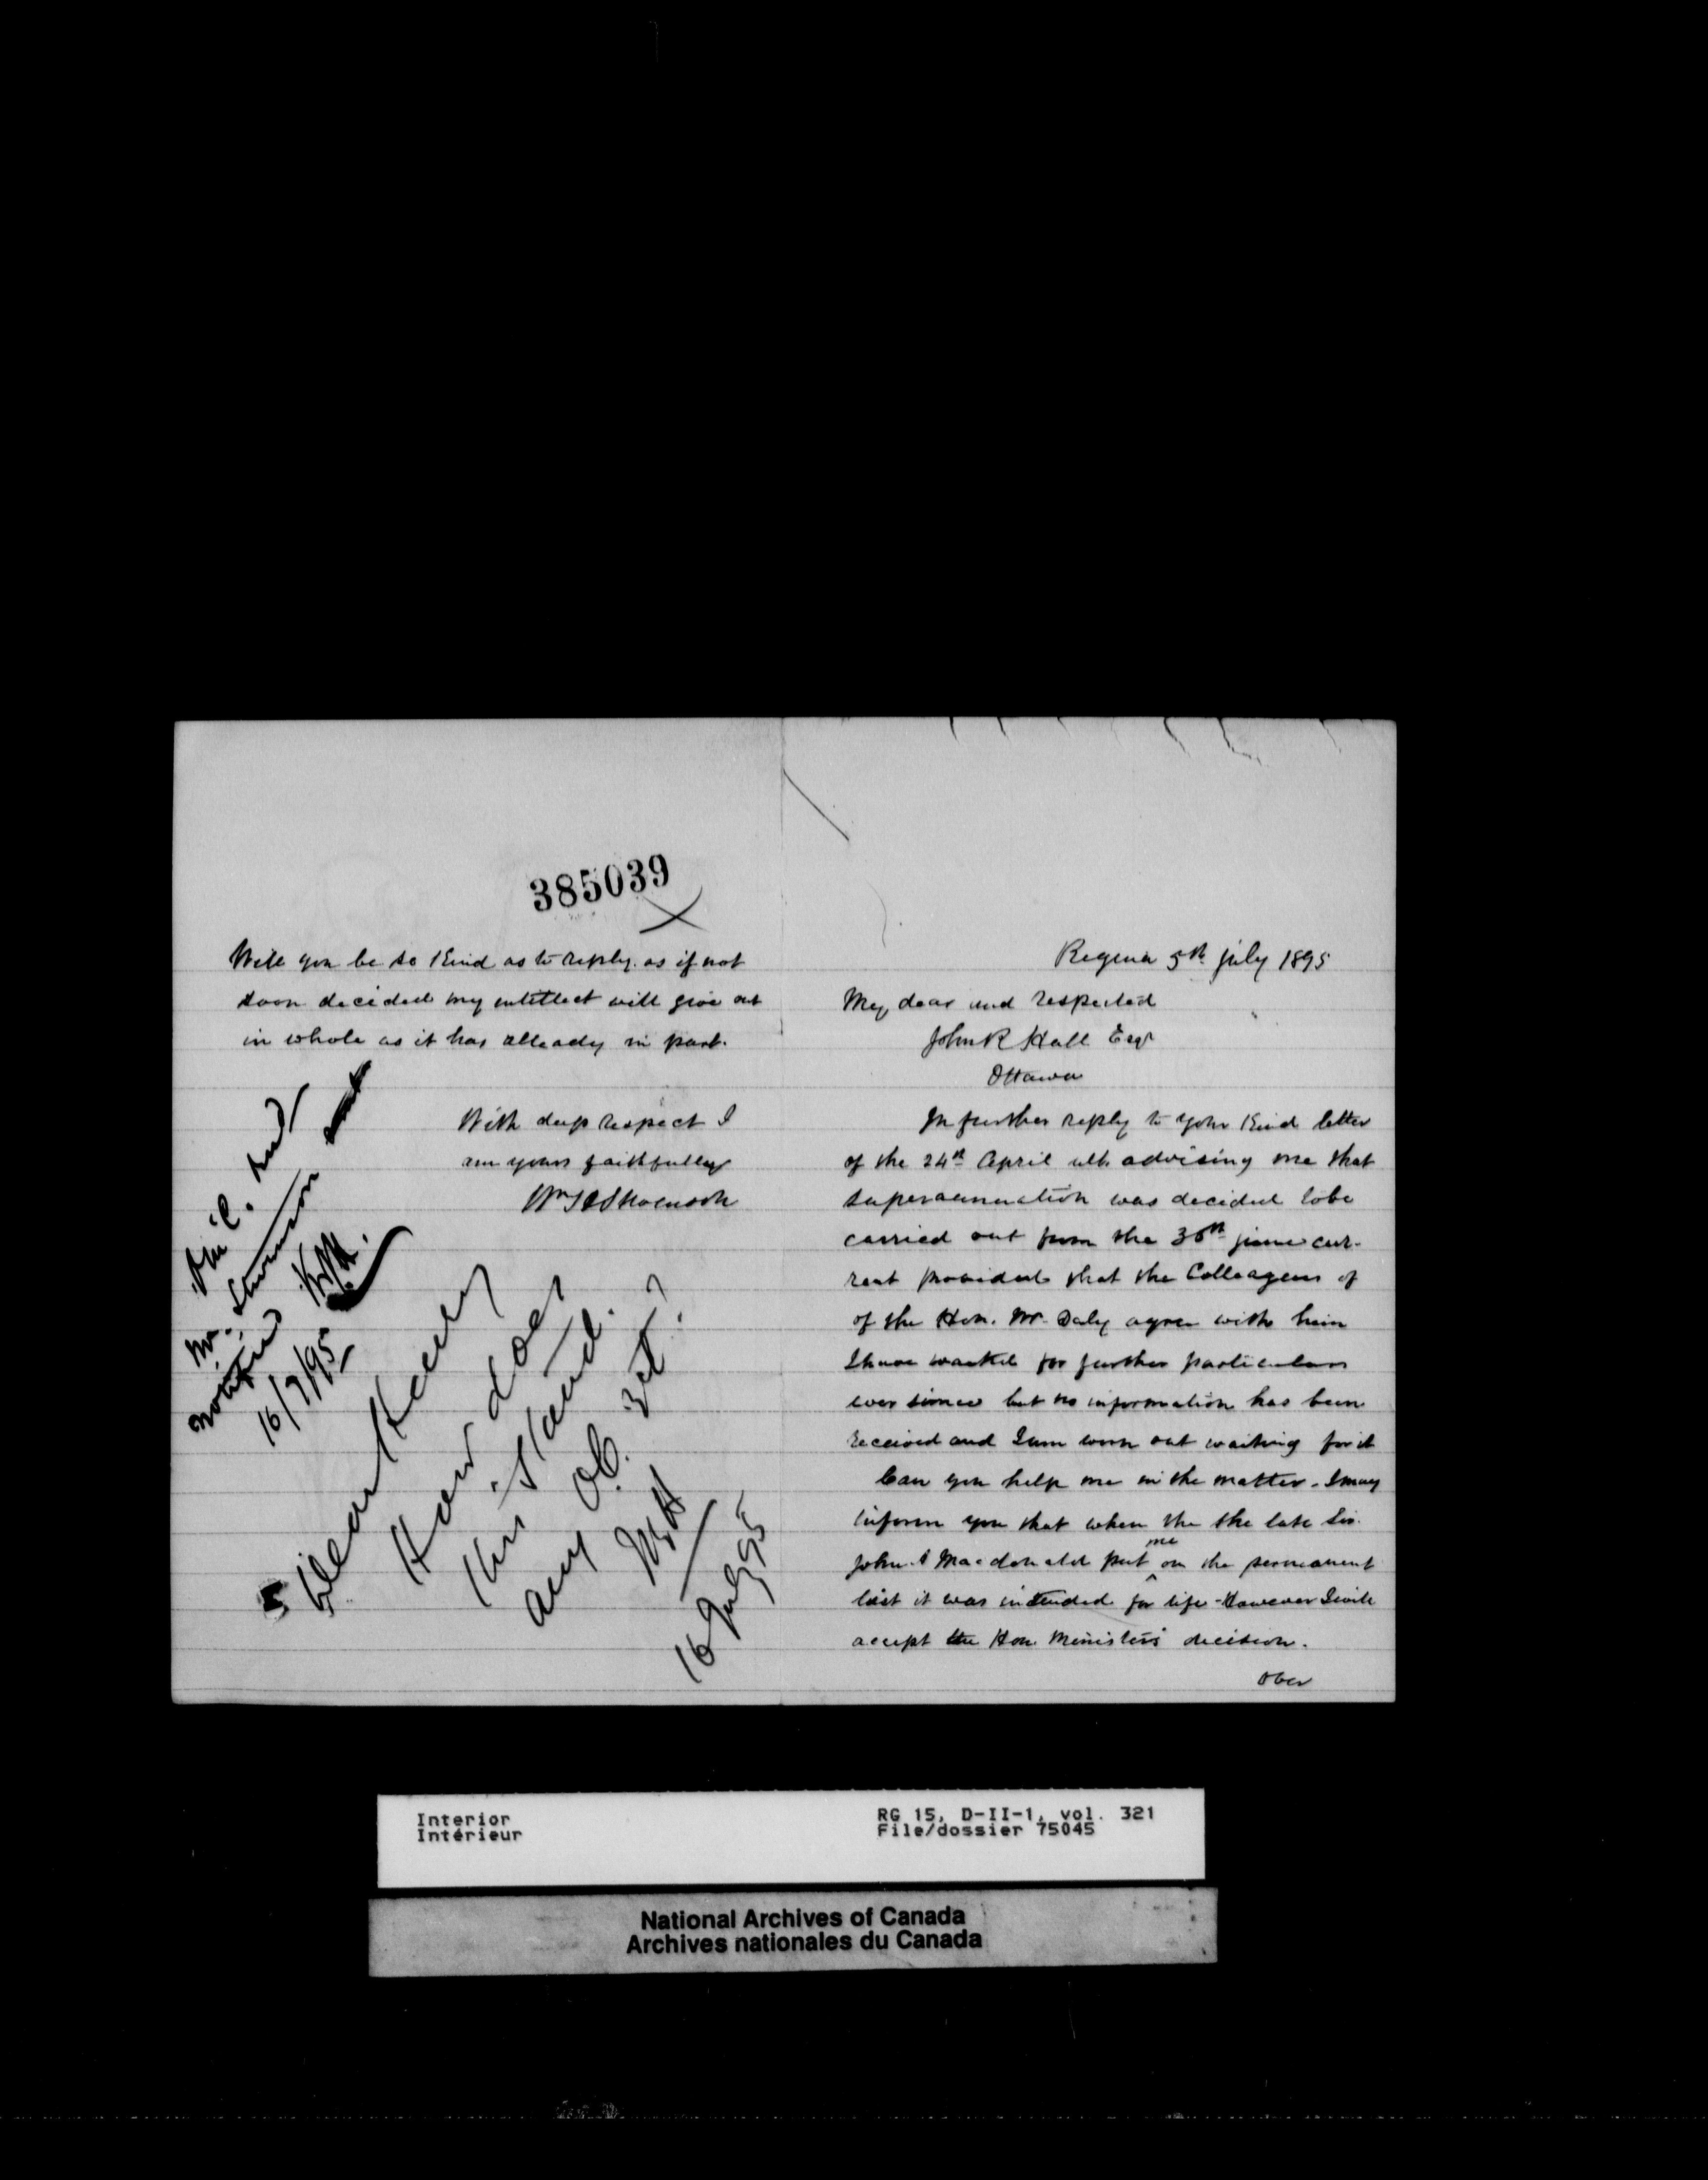 Regina 5th july 1895
My dear and respected
John R Hall Esqr
Ottawa
In further reply to your Kind letter
of the 24th April ult. advising me that
superannuation was decided to be
carried out from the 30th june cur-
rent provided that the Colleagues of
of the Hon. Mr. Daly agree with him
I have waited for further particulars
ever since but no information has been
received and I am worn out waiting for it
Can you help me in the matter. I may
inform you that when the the late Sir.
John A Macdonald put me on the permanent
list it was intended for life - However I will
accept the Hon. Ministers decision.
Over
385039
Will you be so Kind as to reply. as if not
soon decided my intellect will give out
in whole as it has allready in part.
With deep respect I
am yours faithfully
Wm
O.C.
Mr. Stevenson
notified
16/7/95
How does
this stand.
any O.C. yet?
16 July 95
Interior
Intérieur
RG 15, D-II-1, vol. 321
File/dossier 75045
National Archives of Canada
Archives nationales du Canada